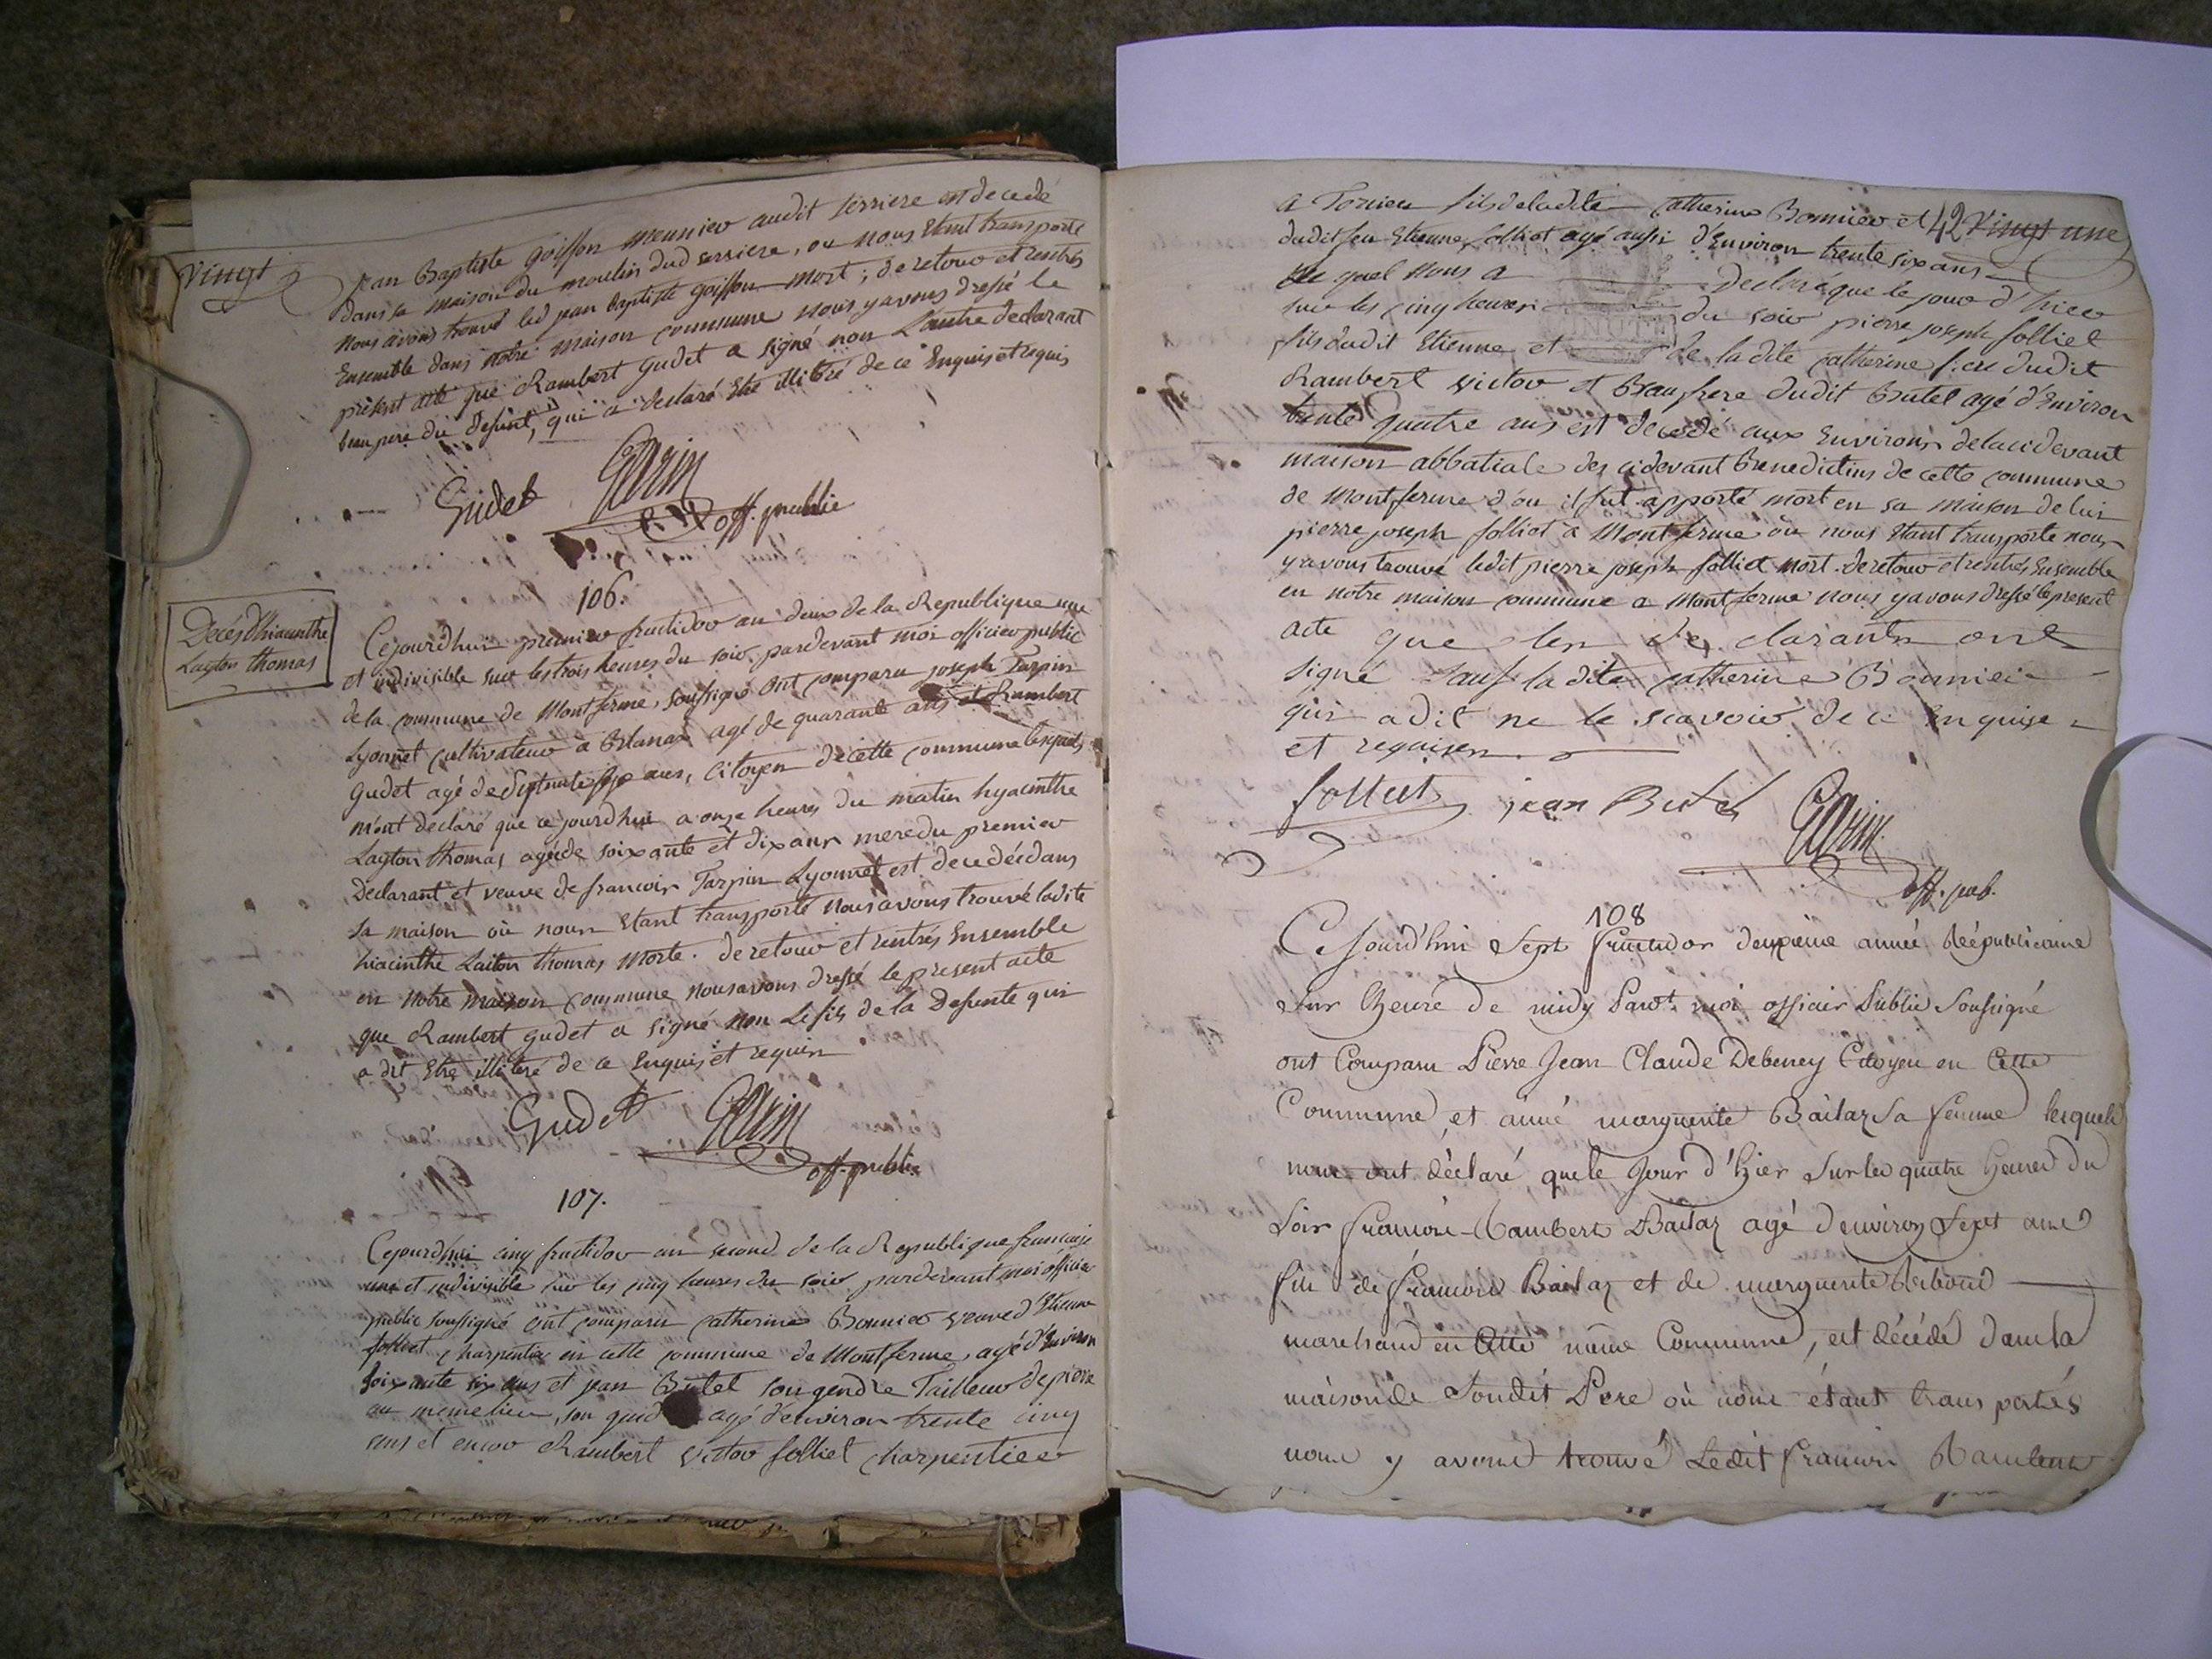 Vingt
jean Baptiste goiffon meunier audit serriere est decedé
dans sa maison du moulin dud serriere, ou nous Etant transporté
nous avons trouvé led jean baptiste goiffon mort; de retour et rentrés
Ensemble dans notre maison commune nous y avons dressé le
présent acte que Rambert gudet a signé non L'autre declarant
beaupere du defunt, qui a declaré Etre illitré de ce Enquis et requis
Gudet Garin
off. public
106.
Décès d'hiacinthe
Layton thomas
Cejourdhui premier fructidor an deux de la Republique une
et indivisible sur les trois heures du soir, pardevant moi officier public
de la commune de Montferme, soussigné ont comparu joseph Tarpin
Lyonnet cultivateur a agé de quarante ans et Rambert
gudet agé de ans, Citoyen de cette commune lesquels
m'ont declaré que ce jourdhui a onze heures du matin hyacinthe
Layton thomas, agéede soixante et dix ans mere du premier
Declarant et veuve de francois Tarpin Lyonnet est decedée dans
sa maison où nous Etant transporté nous avons trouvé ladite
hiacinthe Laiton thomas Morte. de retour et rentrés Ensemble
en notre maison commune nous avons dressé le present acte
que Rambert gudet a signé non Le fils de la Defunte qui
a dit Etre illiteré de ce Enquis et requis
Gudet Garin
off. public
107.
Cejourd'hui cinq fructidor an second de la Republique francaise
une et indivisible sur les cinq heures du soir pardevant moi officier
public soussigné ont comparu catherine Bonnier veuve d'Etienne
folliet charpentier en cette commune de Montferme, agé d'Environ
soixante six ans et jean Butel son gendre Tailleur de piere
au meme lieu, son agé d'environ trente cinq
ans et encor Rambert victor folliet charpentier
42 Vingt une
a Tornieu fils de ladite catherine Bonnier et
dudit feu Etienne folliet agé aussi d'Environ trente six ans
le quel nous a Declaré que le jour d'hier
sur les cinq heures du soir pierre joseph folliet
fils dudit Etienne et de la dite catherine frere dudit
Rambert victor et Beaufrere dudit Butel agé d'Environ
trente quatre ans est decedé aux Environs de la cidevant
maison abbatiale des cidevant Benedictins de cette commune
de Montferme d'ou il fut apporté mort en sa maison de lui
pierre joseph folliet à Montferme ou nous Etant transporte nous
y avons trouvé ledit pierre joseph folliet mort. de retour et rentrés Ensemble
en notre maison commune a Montferme nous y avons dressé le present
acte que les declarants ont
signé sauf la dite catherine Bonnier
qui a dit ne le scavoir de ce Enquise
et requisen
folliet jean Butel Garin
off. pub.
108
Ce jourd'hui Sept fructidor deuxième année Républicaine
sur Lheure de midy Parvt. moi officier Public Soussigné
ont Comparu Pierre Jean Claude Debeney Citoyen en Cette
Commune, et anne marguerite Bailaz sa femme lesquels
nous ont déclaré que le jour d'hier sur les quatre heures du
Soir françois Rambert Bailaz agé denviron Sept ans
fils de françois Bailaz et de marguerite Riboud
marchand en Cette même Commune, est décédé dans la
maison de Sondit Pere où nous étant transportés
nous y avons trouvé Ledit françois Rambert